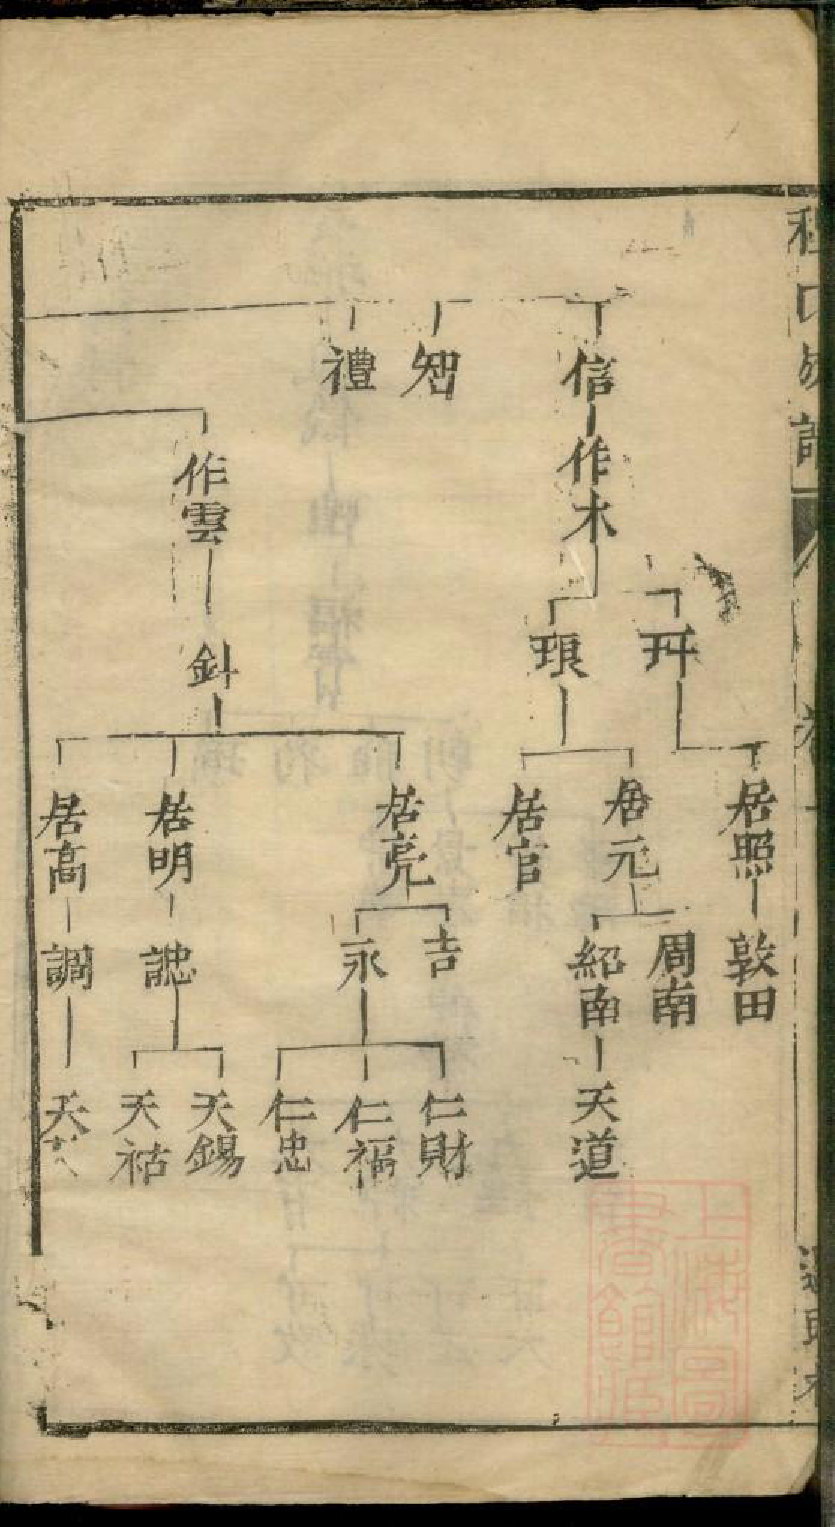 信
知
禮
作木
作雲
琅
釙
居照
居元
居官
居亮
居明
居高
敦田
周南
紹南
吉
永
誌
調
天道
仁財
仁福
仁忠
天錫
天祜
天
上海圖書館藏